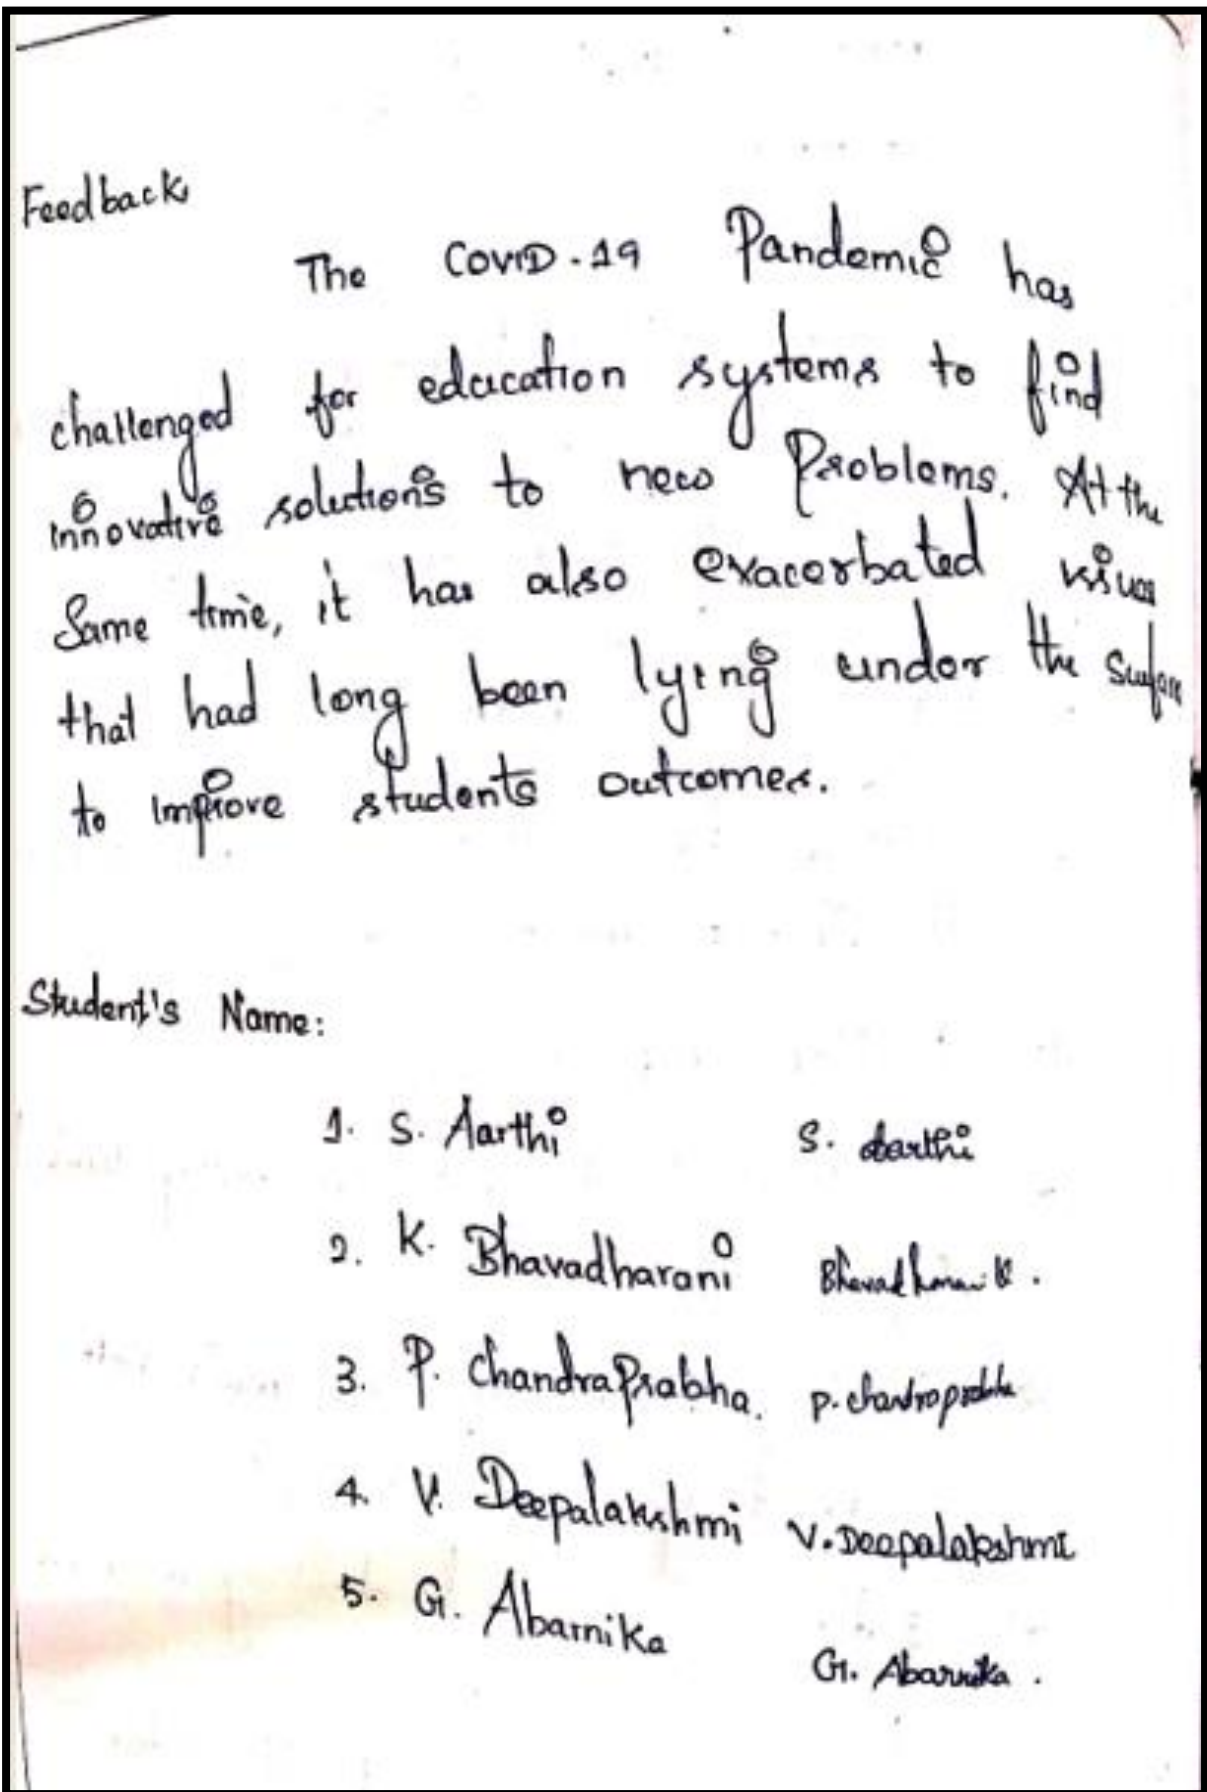 Feedback
The COVID-19 Pandemic has
challenged for education systems to find
innovative solutions to new Problems. At the
Same time, it has also exacerbated issues
that had long been lying under the surface
to improve students outcomes.
Student's Name:
1. S. Aarthi S. Aarthi
2. K. Bhavadharani Bhavadharani K.
3. P. ChandraPrabha. P. Chandraprabha
4. V. Deepalakshmi V. Deepalakshmi
5. G. Abarnika
G. Abarnika.